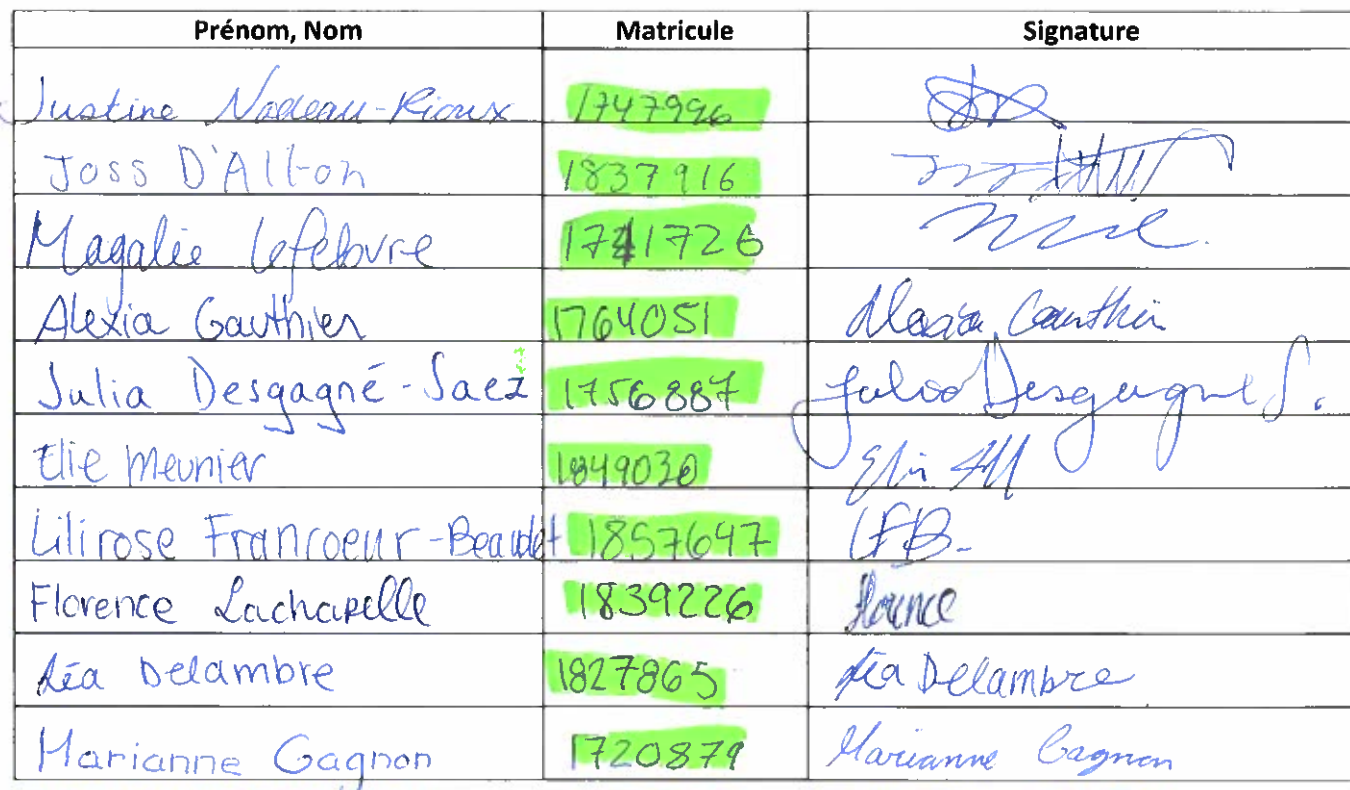 Prénom, Nom Matricule Signature
Justine Nadeau-Rioux 1747996
Joss D'Alton 1837916
Magalie Lefebvre 1741726
Alexia Gauthier 1764051 Alexia Gauthier
Julia Desgagné-Saez 1756887 Julia Desgagné S.
Elie Meunier 1849030 Elie
Lilirose Francoeur-Beaudet 1857647 LFB-
Florence Lachapelle 1839226 Florence
Léa Delambre 1827865 Léa Delambre
Marianne Gagnon 1720879 Marianne Gagnon